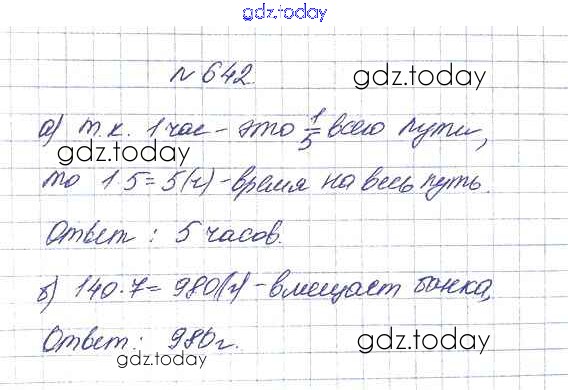 gdz.today
№ 642.
gdz.today
а) т.к. 1 час - это 1/5 всего пути,
gdz.today
то 1·5=5(ч) - время на весь путь.
Ответ: 5 часов.
б) 140·7=980(г) - вмещает банка,
Ответ: 980г.
gdz.today
gdz.today